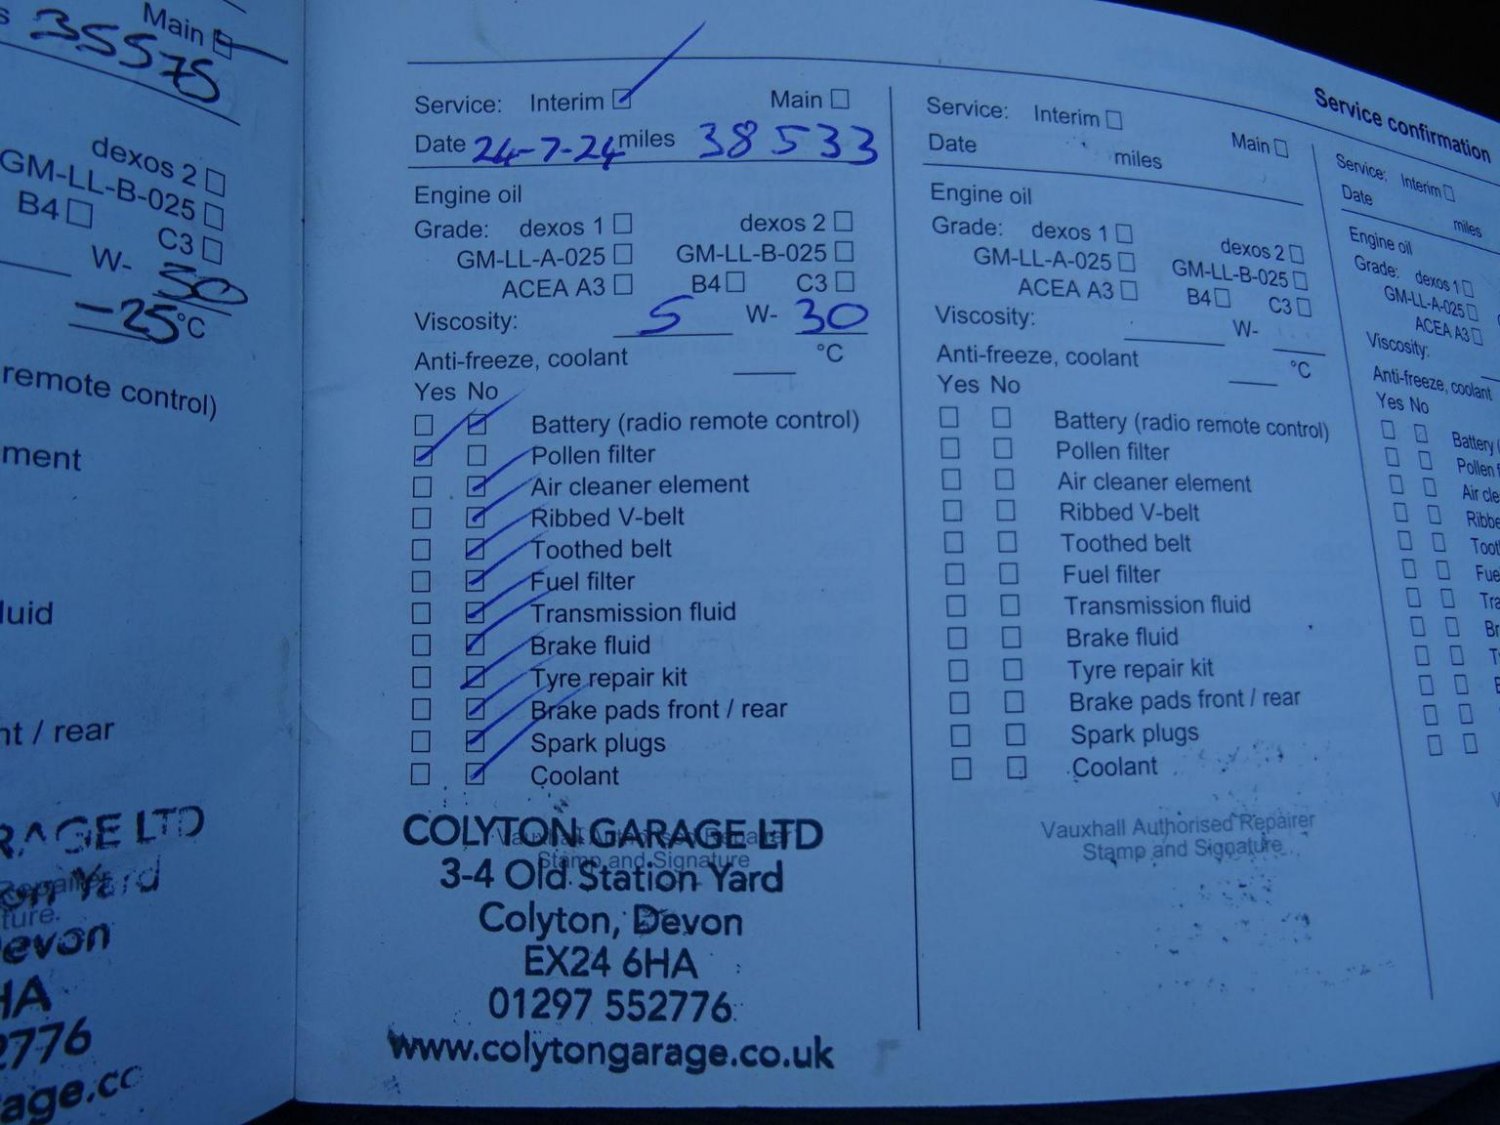 Main
s 35575
dexos 2
GM-LL-B-025
B4 C3
W- 30
-25°C
remote control)
ment
luid
nt / rear
RAGE LTD
on Yard
ture.
evon
HA
2776
age.cc
Service: Interim Main
Date 24-7-24 miles 38533
Engine oil
Grade: dexos 1 dexos 2
GM-LL-A-025 GM-LL-B-025
ACEA A3 B4 C3
Viscosity: 5 W- 30
Anti-freeze, coolant °C
Yes No
Battery (radio remote control)
Pollen filter
Air cleaner element
Ribbed V-belt
Toothed belt
Fuel filter
Transmission fluid
Brake fluid
Tyre repair kit
Brake pads front / rear
Spark plugs
Coolant
Vauxhall Authorised Repairer
Stamp and Signature
COLYTON GARAGE LTD
3-4 Old Station Yard
Colyton, Devon
EX24 6HA
01297 552776
www.colytongarage.co.uk
Service confirmation
Service: Interim Main
Date miles
Engine oil
Grade: dexos 1 dexos 2
GM-LL-A-025 GM-LL-B-025
ACEA A3 B4 C3
Viscosity: W-
Anti-freeze, coolant °C
Yes No
Battery (radio remote control)
Pollen filter
Air cleaner element
Ribbed V-belt
Toothed belt
Fuel filter
Transmission fluid
Brake fluid
Tyre repair kit
Brake pads front / rear
Spark plugs
Coolant
Vauxhall Authorised Repairer
Stamp and Signature
Service: Interim
Date miles
Engine oil
Grade: dexos 1
GM-LL-A-025
ACEA A3
Viscosity:
Anti-freeze, coolant
Yes No
Battery (
Pollen f
Air cle
Ribbe
Toot
Fue
Tra
Br
T